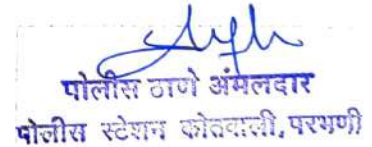 पोलीस ठाणे अंमलदार
पोलीस स्टेशन कोतवाली, परभणी